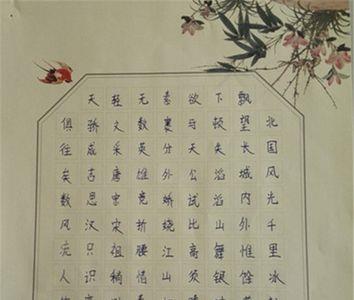 北国风光千里冰
飘望长城内外惟馀
下顿失滔滔山舞银
欲与天公试比高须
素裹分外娇娆江山
无数英雄竞折腰惜
轻文采唐宗宋祖稍
天骄成吉思汗只识
俱往矣数风流人